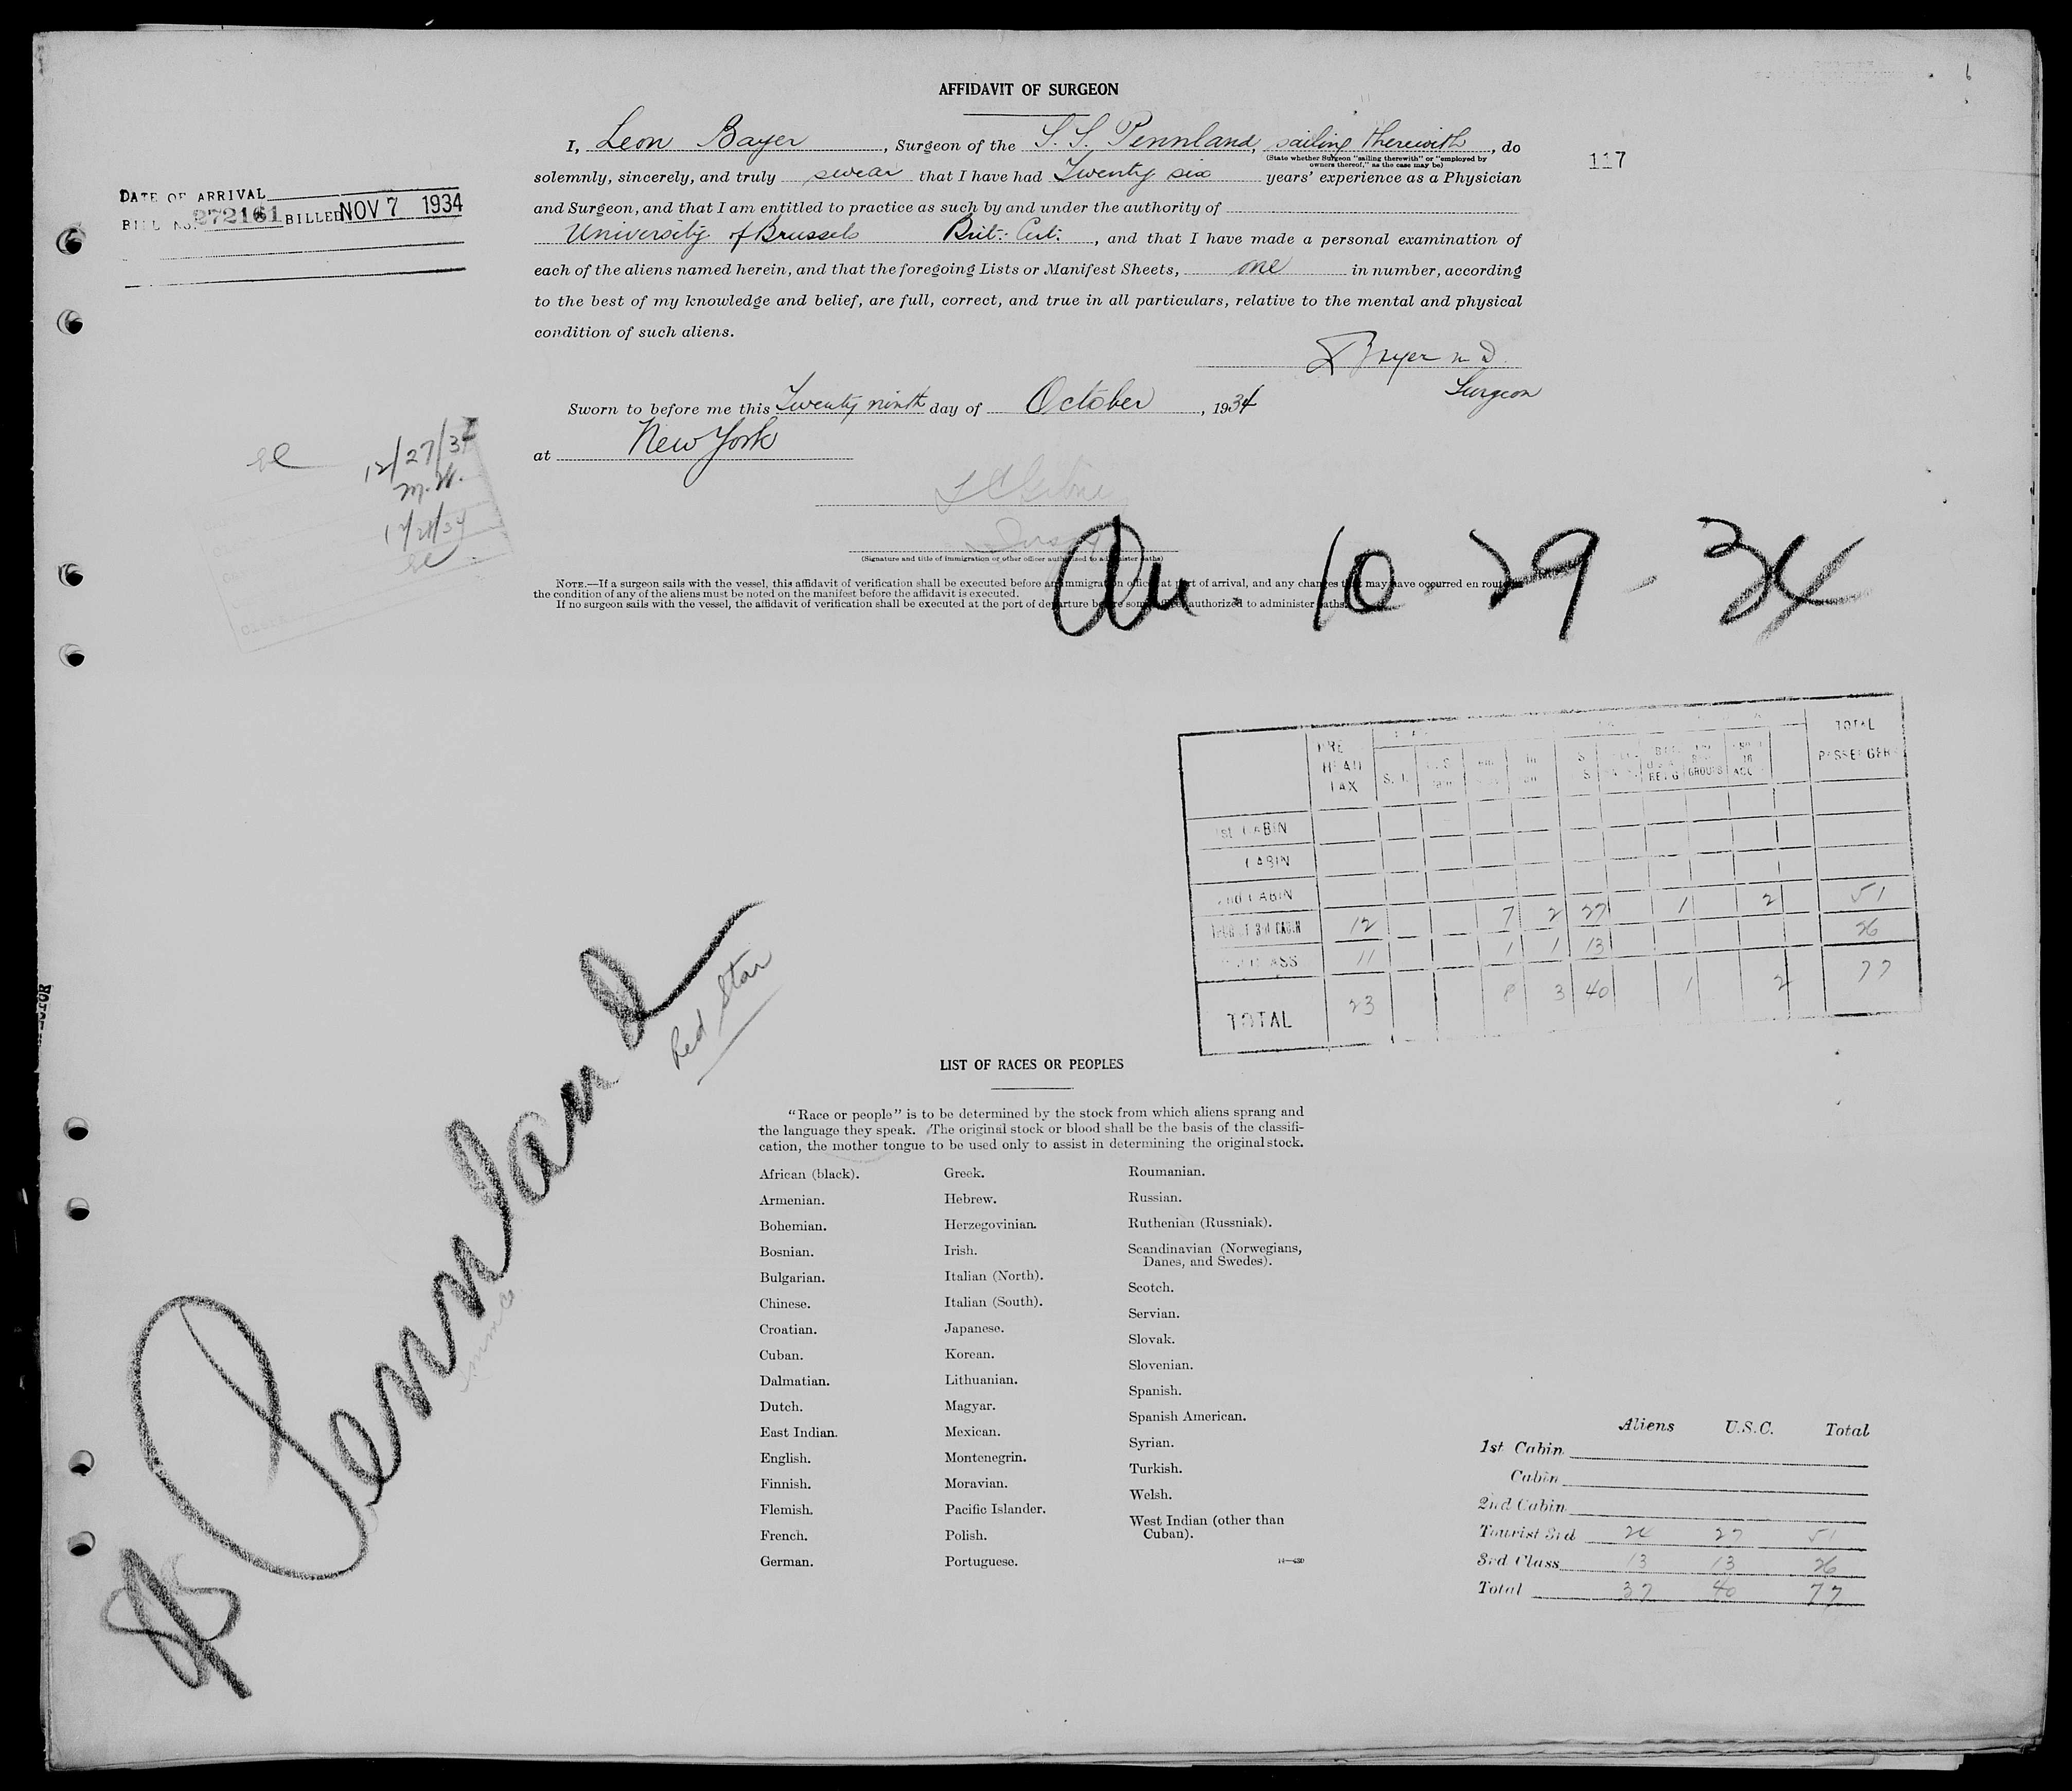 AFFIDAVIT OF SURGEON
I, Leon Bayer, Surgeon of the S.S. Pennland, sailing therewith, do
(State whether Surgeon "sailing therewith" or "employed by
owners thereof," as the case may be)
solemnly, sincerely, and truly swear that I have had Twenty six years' experience as a Physician
and Surgeon, and that I am entitled to practice as such by and under the authority of
University of Brussels Brit: Cert:, and that I have made a personal examination of
each of the aliens named herein, and that the foregoing Lists or Manifest Sheets, one in number, according
to the best of my knowledge and belief, are full, correct, and true in all particulars, relative to the mental and physical
condition of such aliens.
Bayer M D
Surgeon
Sworn to before me this Twenty ninth day of October, 1934
at New York
(Signature and title of immigration or other officer authorized to administer oaths)
NOTE.—If a surgeon sails with the vessel, this affidavit of verification shall be executed before an immigration officer at port of arrival, and any changes that may have occurred en route in
the condition of any of the aliens must be noted on the manifest before the affidavit is executed.
If no surgeon sails with the vessel, the affidavit of verification shall be executed at the port of departure before some officer authorized to administer oaths.
117
DATE OF ARRIVAL
BILL No. 272161 BILLED NOV 7 1934
12/27/34
M.W.
10-29-34
HEAD
TAX
TOTAL
PASSENGERS
1st CABIN
CABIN
2nd CABIN
12 7 2 27 1 2 51
11 1 1 13 26
TOTAL 23 8 3 40 1 2 77
SS Pennland
Red Star
LIST OF RACES OR PEOPLES
"Race or people" is to be determined by the stock from which aliens sprang and
the language they speak. The original stock or blood shall be the basis of the classifi-
cation, the mother tongue to be used only to assist in determining the original stock.
African (black).
Armenian.
Bohemian.
Bosnian.
Bulgarian.
Chinese.
Croatian.
Cuban.
Dalmatian.
Dutch.
East Indian.
English.
Finnish.
Flemish.
French.
German.
Greek.
Hebrew.
Herzegovinian.
Irish.
Italian (North).
Italian (South).
Japanese.
Korean.
Lithuanian.
Magyar.
Mexican.
Montenegrin.
Moravian.
Pacific Islander.
Polish.
Portuguese.
Roumanian.
Russian.
Ruthenian (Russniak).
Scandinavian (Norwegians,
Danes, and Swedes).
Scotch.
Servian.
Slovak.
Slovenian.
Spanish.
Spanish American.
Syrian.
Turkish.
Welsh.
West Indian (other than
Cuban).
Aliens U.S.C. Total
1st Cabin
Cabin
2nd Cabin
Tourist 3rd 24 27 51
3rd Class 13 13 26
Total 37 40 77